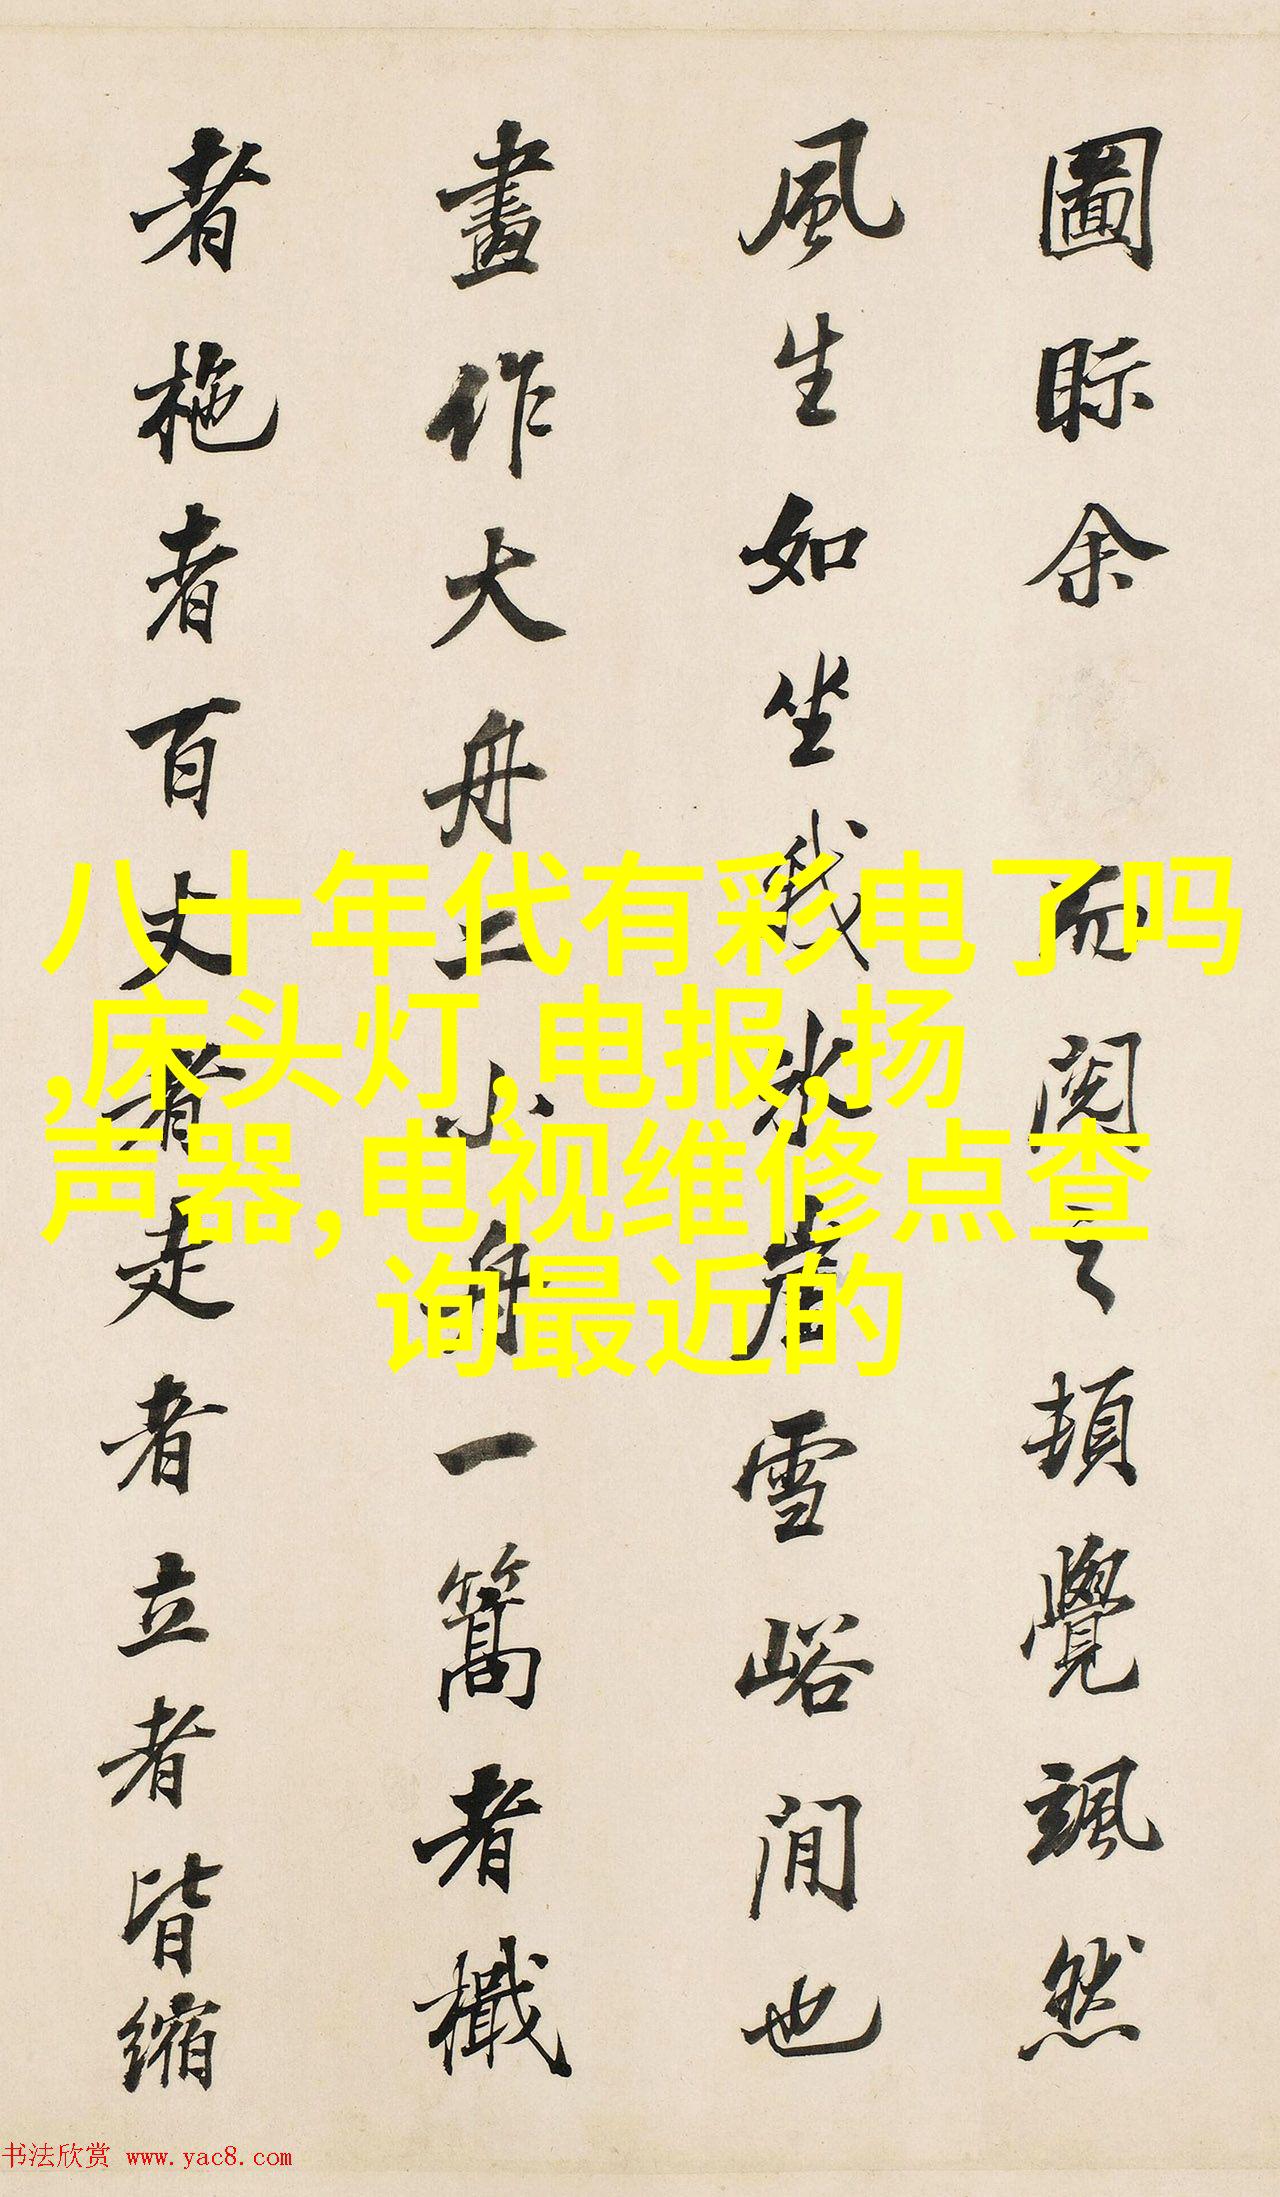 圖眎余而閱之頓覺颯然
風生如坐我冰崖雪峪間也
畫作大舟二小舟一篙者檝
者柂者百丈者走者立者皆縮
八十年代有彩电了吗
,床头灯,电报,扬
声器,电视维修点查
询最近的
书法欣赏 www.yac8.com